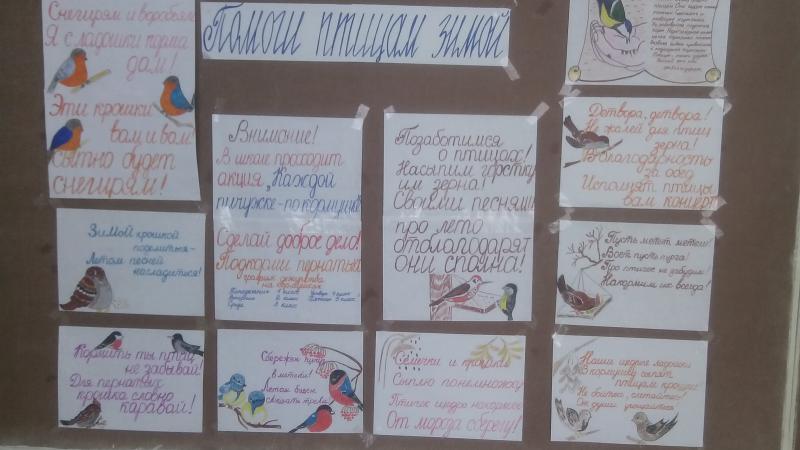 Помоги птицам зимой
Снегирям и воробьям
Я с ладошки корма
дам!
Эти крошки
вам и вам
Сытно будет
снегирям!
Внимание!
В школе проходит
акция „Каждой
пичужке-по кормушке
Сделай доброе дело!
Подкорми пернатых
график дежурства
на кормушках
Понедельник 1 класс Четверг 4 класс
Вторник 2 класс Пятница 5 класс
Среда 3 класс
Позаботимся
о птицах!
Насыпим горстку
им зерна!
Своими песнями
про лето
отблагодарят
они сполна!
Детвора, детвора!
Не жалей для птиц
зерна!
В благодарность
за обед
Исполнят птицы
вам концерт
Зимой крошкой
поделиться-
Летом песней
насладиться!
Пусть метет метель!
Воет пусть пурга!
Про птичек не забудим
Накормим их всегда!
Кормить ты птиц
не забывай!
Для пернатых
крошка словно
каравай!
Сбережем птиц
в метели!
Летом будем
слышать трели
Семечки и крошки
Сыплю понемножку
Птичек щедро накормлю
От мороза сберегу!
Наши щедрые ладошки
В кормушку сыпят
птицам крошки!
Не бойтесь, слетайтесь!
От души угощайтесь